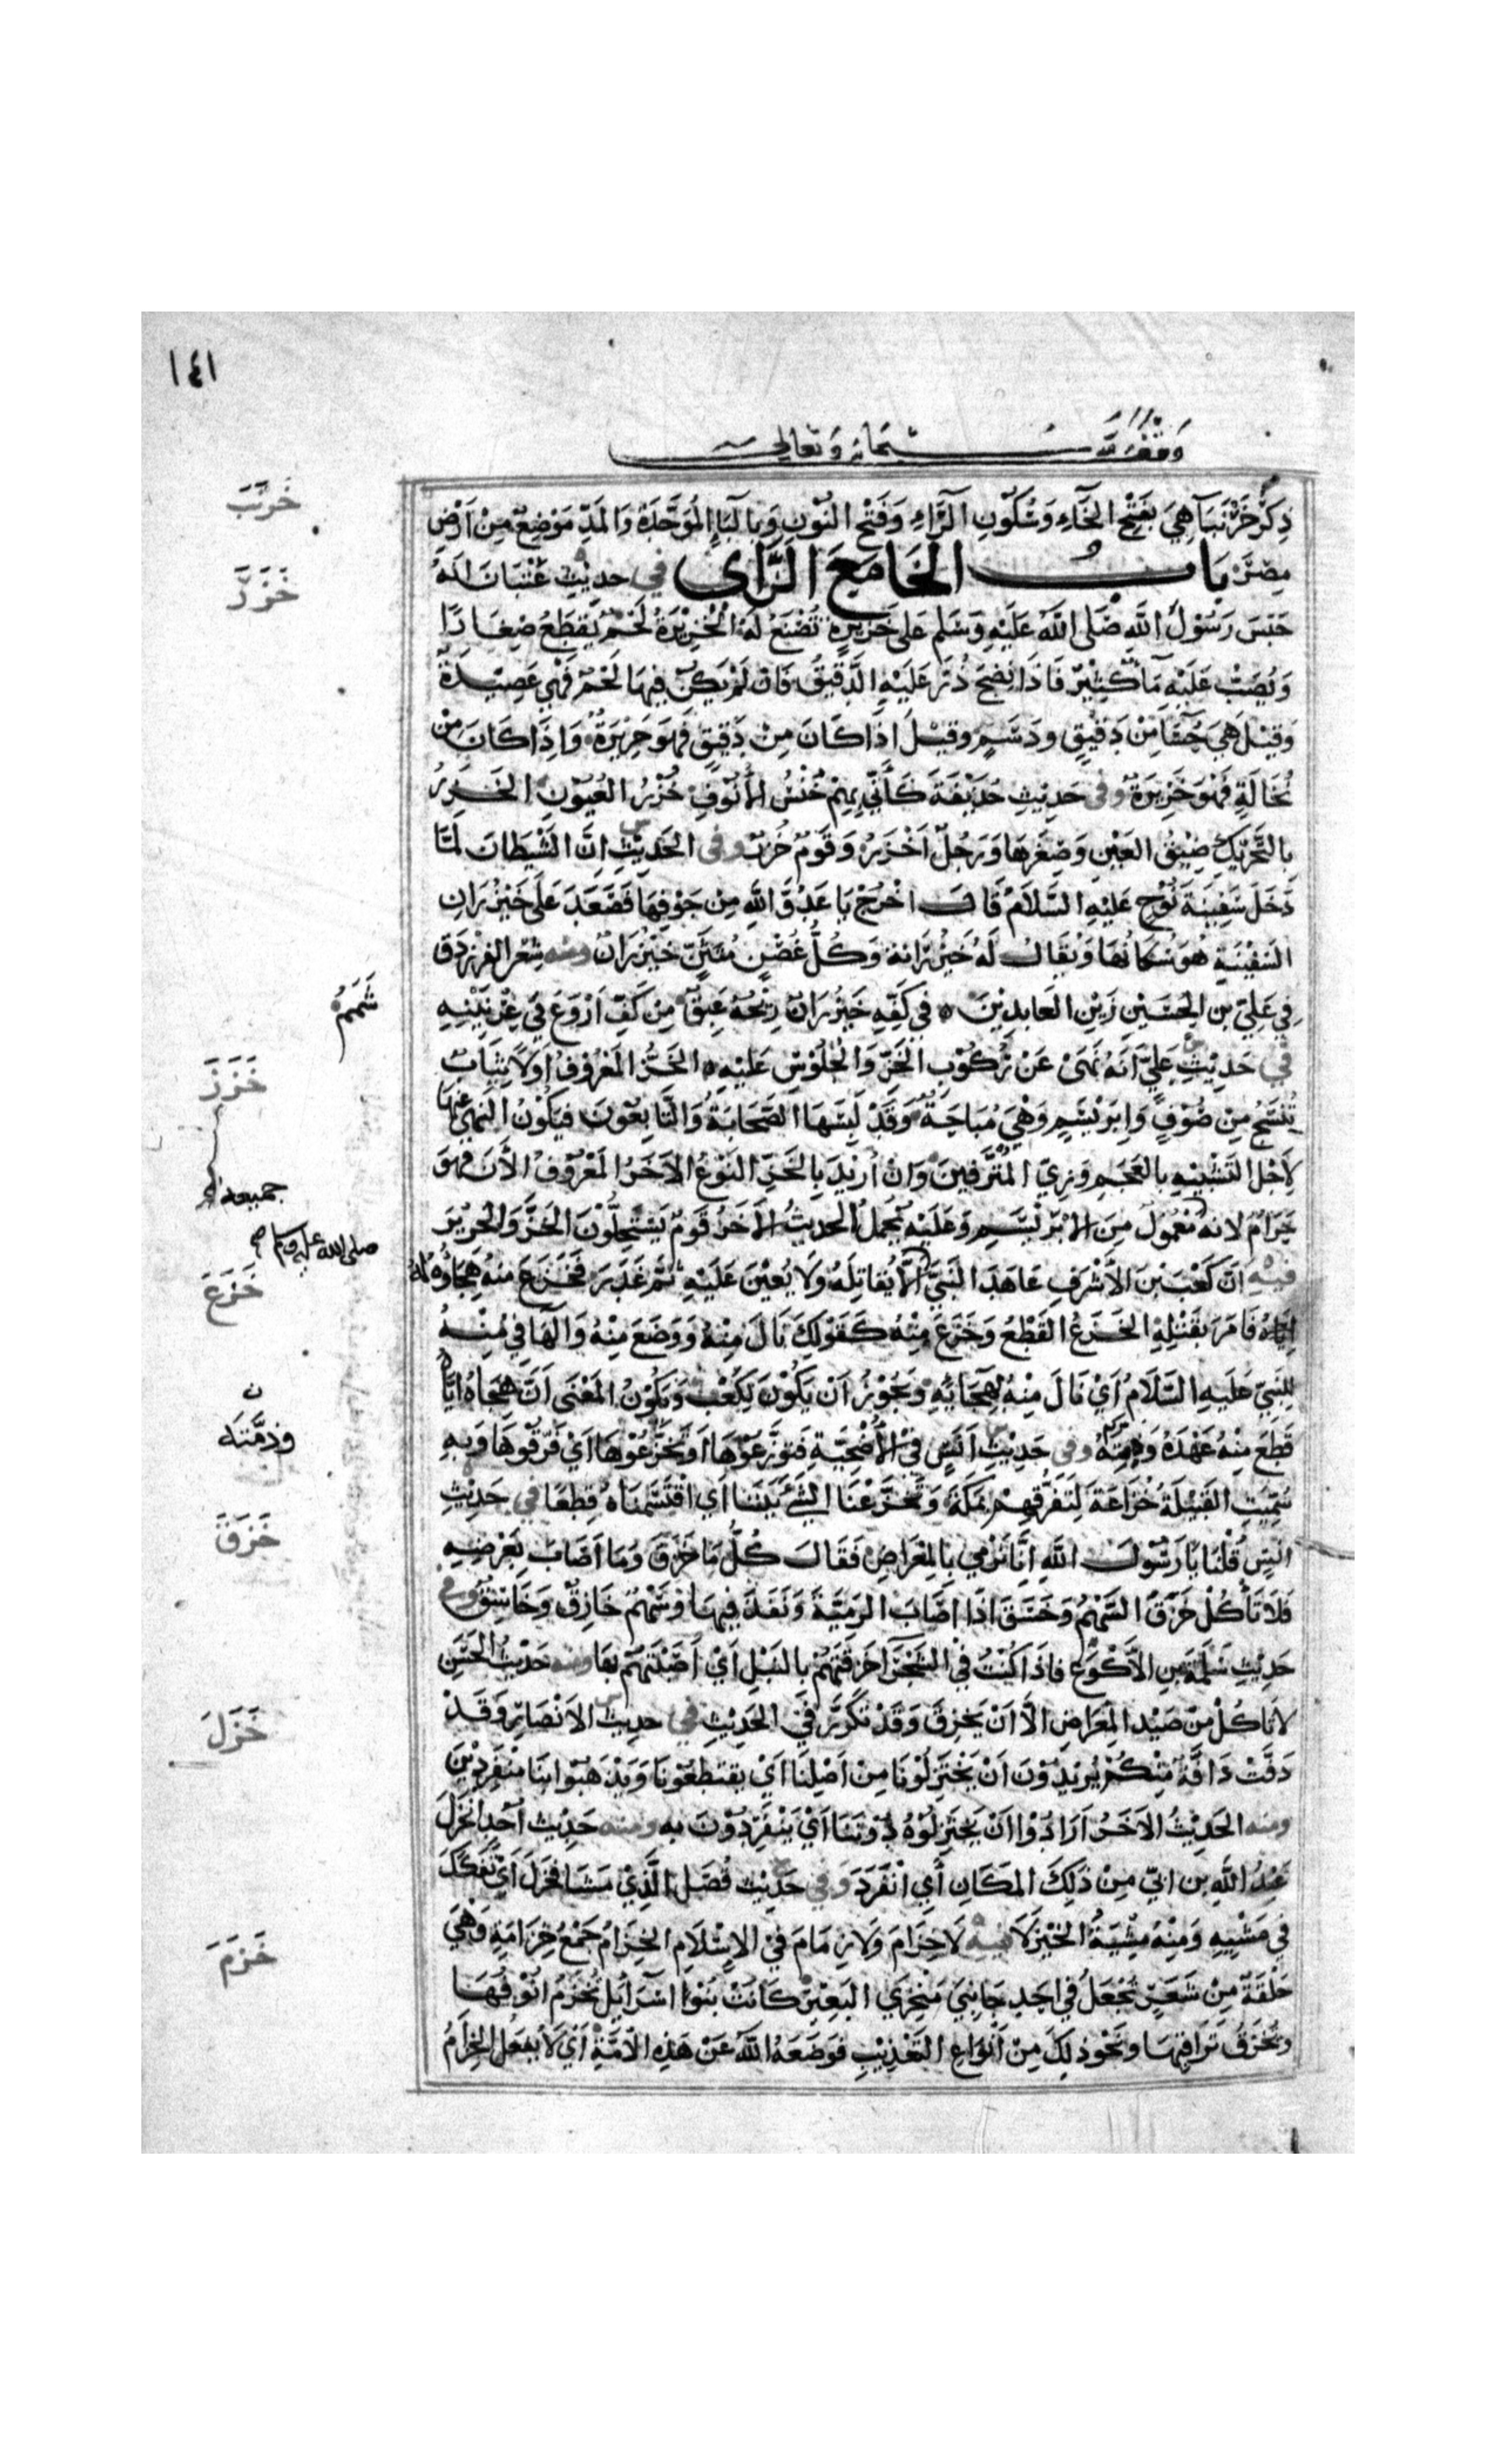 ١٤١
وقف لله سبحانه وتعالى
ذِكْرُ خَرْنَبَآ هِيَ بفَتْحِ الخَآءِ وَسُكُوْنِ الرَّاءِ وَفَتْحِ النُوْنِ وَبالبَآءِ المُوَحَّدَةِ وَالمَدِّ مَوْضِعٌ مِنْ اَرْضِ
خَرْنَبَ
مِصْرَ بَابُ الخَا مَعَ الزَّاي في حديثِ عِتْبَانَ انهُ
خَزَرَ
حَبَسَ رَسُوْلَ اللَّهِ صَلى اللَّهُ عَلَيْهِ وَسَلم عَلى خَزِيْرَةٍ تُصْنَعُ لَهُ الْخَزِيْرَةُ لَحْمٌ يُقَطَّعُ صِغَارًا
وَيُصَبُّ عَلَيْهِ مَآءٌ كَثِيْرٌ فَاذَا نَضِجَ ذُرَّ عَلَيْهِ الدَّقِيْقُ فَان لَمْ يَكُنْ فِيهَا لَحْمٌ فَهْيَ عَصِيْدَةٌ
وَقِيْلَ هِيَ حَسًا مِنْ دَقِيْقٍ ودَسَمٍ وقيْلَ اذَا كَانَ مِنْ دَقِيْقٍ فَهُوَ حَرِيْرَةٌ وَاِذَا كَانَ مِنْ
نُخَالَةٍ فَهْوَ خَزِيْرَةٌ وفى حَدِيْثِ حُذَيْفَةَ كَأَنِّي بِهِمْ خُنْسُ الأُنُوْفِ خُزْرُ العُيُوْنِ الخَزَرُ
بِالتَّحْرِيْكِ ضِيْقُ العَيْنِ وَصِغَرُهَا وَرَجُلٌ اَخْزَرُ وَقَوْمٌ خُزْرٌ وفى الحَدِيْثِ اِنَّ الشَّيْطَانَ لمَّا
دَخَلَ سَفِيْنَةَ نُوْحٍ عَلَيْهِ السَّلَامُ قَالَ اخْرُجْ يَا عَدُوَّ اللهِ مِن جَوْفِهَا فَصَعَدَ عَلَى خَيْزُرَانِ
السَفِيْنَةِ هُوَ سُكَّانُهَا وَيُقَالُ لَهُ خَيْزُرَانه وَكُلُّ غُصْنٍ مُتَثَنٍّ خَيْزُرَانٌ ومنه شعرُ الفرزدق
فِي عَلِيِّ بن الحُسَيْنِ زَيْنِ العَابدِيْنَ ه في كَفِّهِ خَيْزُرَانٌ رِيْحُهُ عَبِقٌ مِنْ كَفِّ اَرْوَعَ فِي عِرْنِيْنِهِ
شَمَمُ
في حَدِيْثِ عَلِيٍّ اَنَهُ نَهَىٰ عَنْ رُكُوْبِ الخَزِّ وَالجُلُوْسِ عَلَيْهِ ه الخَزُّ المَعْرُوْفُ اوَلًا ثِيَابٌ
خَزَزَ
تُنْسَجُ مِنْ صُوْفٍ وَاِبْرَيْسَمٍ وَهْيَ مُبَاحَةٌ وَقَدْ لَبِسَهَا الصَّحَابَةُ وَالتَّابِعُوْنَ فيكُوْنُ النهيُ عنها
لاَجْلِ التَشْبِيْهِ بالعَجَمِ وَزِيِّ المُتْرَفِيْنَ وَانْ اُرِيْدَ بِالخَزِّ النَوْعُ الآخَرُ المَعْرُوْفُ الأَنَ فَهُوَ
جميعه
حَرَامٌ لانه مَعْمُوْلٌ مِنَ الابْرَيْسَمِ وَعَلَيْهِ يُحْمَلُ الحديثُ الآخَرُ قَومٌ يَسْتَحِلُّوْنَ الخَزَّ وَالحَرِيْرَ
صلى الله عليه وسلم صح
فيهِ اَنَّ كَعْبَ بْنَ الاَشْرَفِ عَاهَدَ النَبِيَّ الَّا يُقَاتِلَهُ وَلَا يُعِيْنَ عَلَيْهِ ثُمَّ غَدَرَ فَخَزَعَ مِنهُ هِجَاؤُهُ لَهُ
خَزَعَ
فَامَرَ بقَتْلِهِ الخَزْعُ القَطْعُ وَخَزَعَ مِنْهُ كَقَوْلِكَ نَالَ مِنْهُ وَوَضَعَ مِنْهُ وَالهَا فِي مِنْهُ
لِلنَبِيّ عَلَيهِ السَّلَامُ اَيْ نَالَ مِنْهُ بِهِجَائِهِ وَيَجُوْزُ اَنْ يَكُوْنَ لِكَعْبٍ وَيَكُوْنُ المَعْنَى اَنَّ هِجَاهُ ايَّاهُ
ن
وذمَّته
قَطَعَ مِنْهُ عَهْدَهُ وفى حَدِيْثِ اَنَسٍ فِيْ الأُضْحِيَّةِ فَتَوَزَّعُوْهَا اَوْ تَخَزَّعُوْهَا اَيْ فَرَّقُوْهَا وَبِهِ
سُمِّيَتِ القَبِيْلَةُ خُزَاعَةَ لِتَفَرُّقِهِمْ بمَكَةَ وَتَخَزَّعْنَا الشَيْءَ بَيْنَنَا اَي اقْتَسَمْنَاهُ قِطَعًا في حَدِيْثِ
خَزَقَ
قُلْنَا يَا رَسُوْلَ اللهِ اِنَّا نَرْمِي بِالمِعْرَاضِ فَقَالَ كُلْ مَا خَزَقَ وَمَا اَصَابَ بِعَرْضِهِ
فَلَا تَأكُلْ خَزَقَ السَّهْمُ وَخَسَقَ اذَا اَصَابَ الرَمِيَّةَ وَنَفَذَ فِيهَا وَسَهْمٌ خَازِقٌ وَخَاسِقٌ وفى
حَدِيْثِ سَلَمَةَ بنِ الاَكْوَعِ فَاذَا كُنْتُ فِي الشَجْرَآ خَزَقْتُهُمْ بالنَبْلِ اَيْ اَصَبْتُهُمْ بهَا ومنه حَدِيْثُ الحَسَنِ
لا تَأكُلْ مِنْ صَيْدِ المِعْرَاضِ الاَّ اَنْ يَخْزِقَ وَقَدْ تَكَرَّرَ فِي الحَدِيْثِ في حديث الاَنْصَارِ وَقَدْ
خَزَلَ
دَفَّتْ دَافَّةٌ مِنْكُمْ يُرِيْدُوْنَ اَنْ يَخْتَزِلُوْنَا مِنْ اَصْلِنَا اَيْ يقتطعُوْنَا وَيَذْهَبُوْا بنَا مُنْفَرِدِيْنَ
ومنه الحَدِيْثُ الآخَرُ اَرَادُوْا اَنْ يَخْتَزِلُوْهُ دُوْنَنَا اَيْ يَنْفَرِدُوْنَ به ومنه حَدِيْث اُحُدٍ انخَزَلَ
عَبْدُ اللهِ بن ابيّ مِنْ ذَلِكَ المَكَانِ أَيِ انْفَرَدَ وفي حَدِيْث قُصَل الَّذِيْ مَشَا فَخَزَلَ اَيْ تَفَكَّكَ
فِي مَشْيِهِ وَمِنْهُ مِشْيَةُ الخَيْزَلَا فيه لَاخِزَامَ وَلَازِمَامَ فيْ الاِسْلَامِ الخِزَامُ جَمْعُ خِزَامَةٍ وَهْيَ
خَزَمَ
حَلْقَةٌ مِنْ شَعَرٍ تُجْعَلُ فِي اَحَدِ جَانِبَيْ مَنْخِرَيِ البَعِيْرِ كَانَتْ بَنُوْا اسْرَآئِيْلَ تَخْزِمُ انُوْفَهَا
وَتَخْرِقُ تَرَاقِيَهَا ونَحْوَ ذلِكَ مِنْ اَنْوَاعِ التَعْذِيْبِ فَوَضَعَهُ اللّهُ عَنْ هَذِهِ الاُمَّةِ اَيْ لَا يُفعَلُ الخِزَامُ